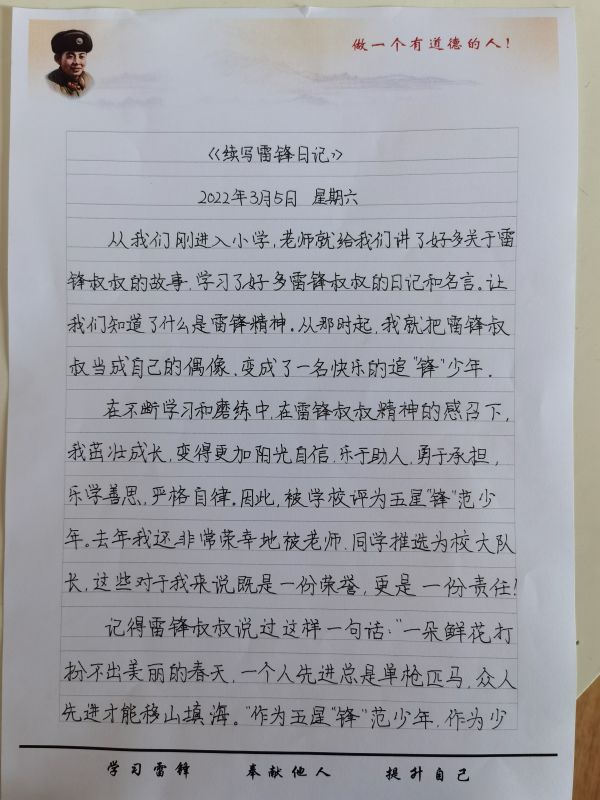 做一个有道德的人！
《续写雷锋日记》
2022年3月5日 星期六
从我们刚进入小学,老师就给我们讲了好多关于雷
锋叔叔的故事,学习了好多雷锋叔叔的日记和名言。让
我们知道了什么是雷锋精神。从那时起,我就把雷锋叔
叔当成自己的偶像,变成了一名快乐的追“锋”少年。
在不断学习和磨练中,在雷锋叔叔精神的感召下,
我茁壮成长,变得更加阳光自信,乐于助人,勇于承担,
乐学善思,严格自律。因此,被学校评为五星“锋”范少
年。去年我还非常荣幸地被老师、同学推选为校大队
长,这些对于我来说既是一份荣誉,更是一份责任!
记得雷锋叔叔说过这样一句话:“一朵鲜花打
扮不出美丽的春天,一个人先进总是单枪匹马,众人
先进才能移山填海。”作为五星“锋”范少年,作为少
学习雷锋 奉献他人 提升自己